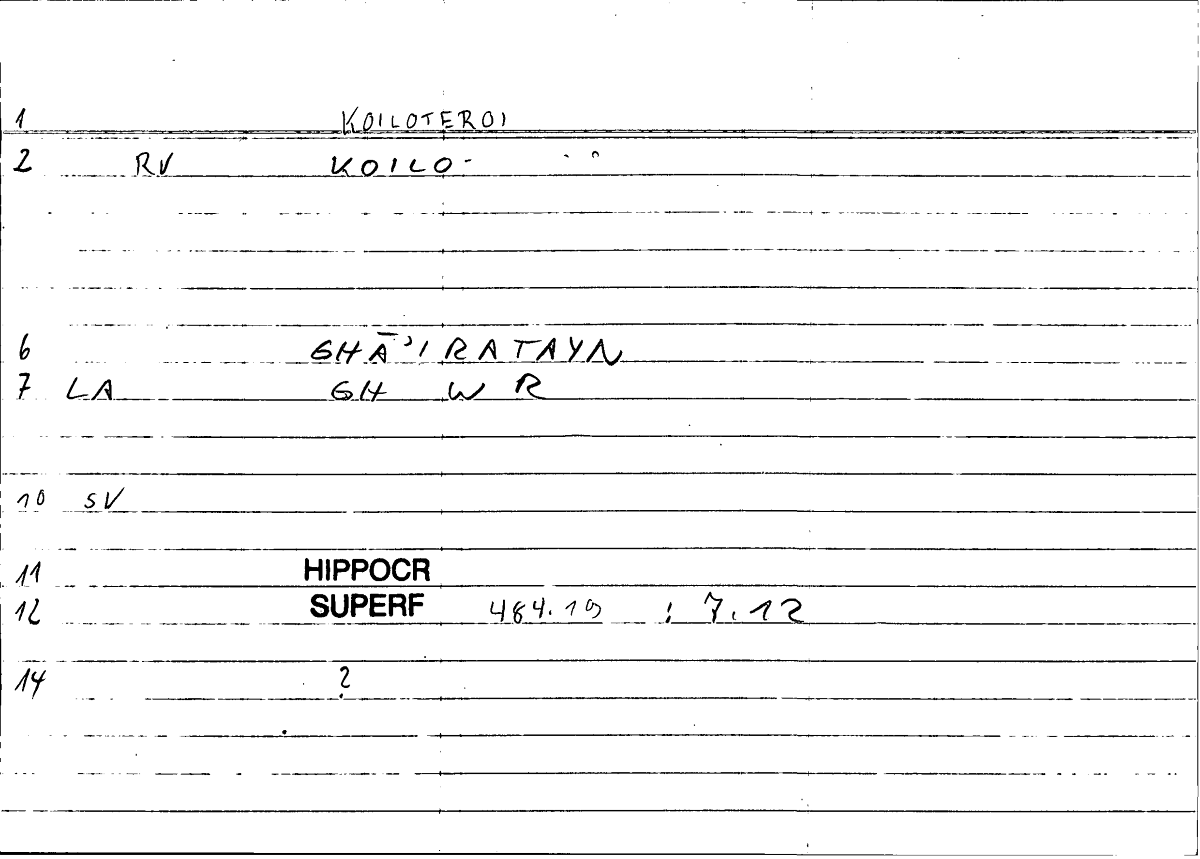 1 KOILOTEROI
2 RV KOILO-
6 GHĀ'IRATAYN
7 LA GH W R
10 SV
11 HIPPOCR
12 SUPERF 484.19 : 7.12
14 ?